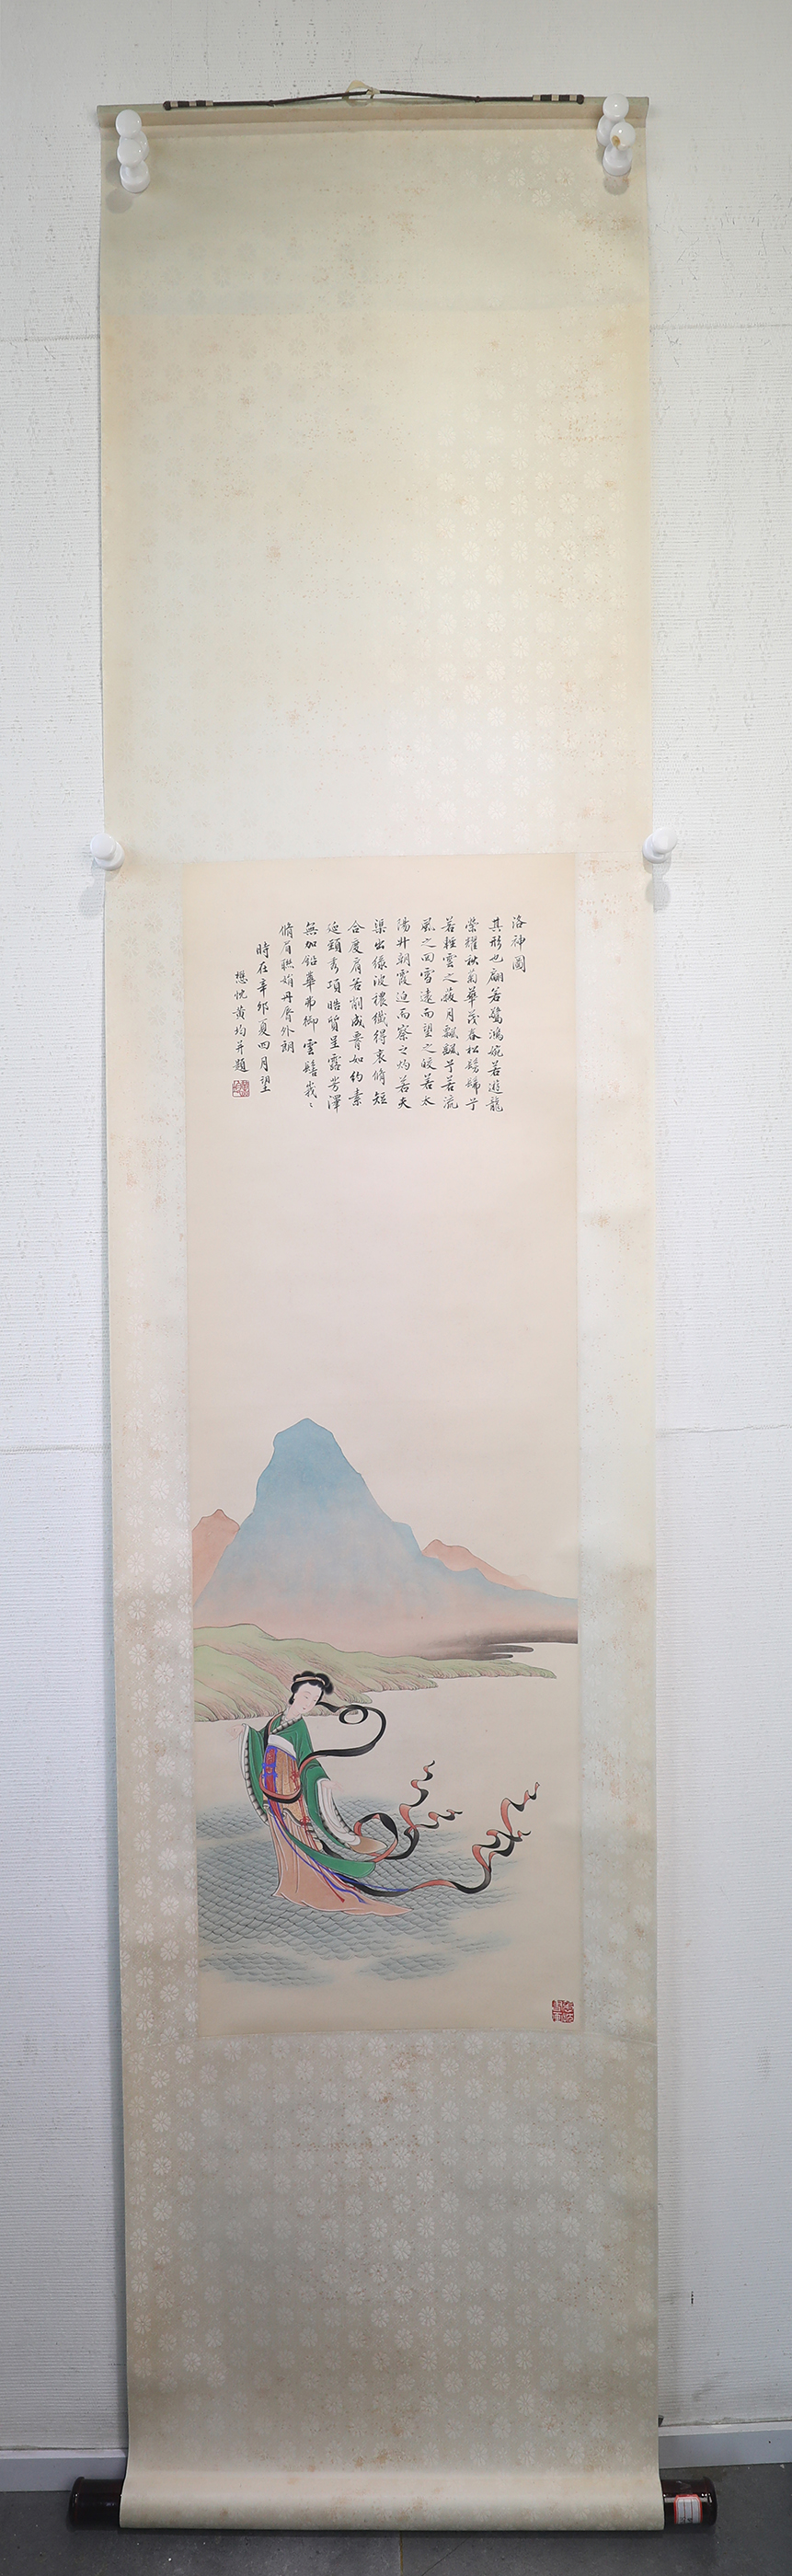 洛神圖
其形也翩若驚鴻婉若遊龍
榮耀秋菊華茂春松髣髴兮
若輕雲之蔽月飄颻兮若流
風之回雪遠而望之皎若太
陽升朝霞迫而察之灼若夫
渠出綠波穠纖得衷脩短
合度肩若削成腰如約素
延頸秀項皓質呈露芳澤
無加鉛華弗御雲髻峩〻
脩眉聯娟丹脣外朗
時在辛卯夏四月望
懋忱黃均并題